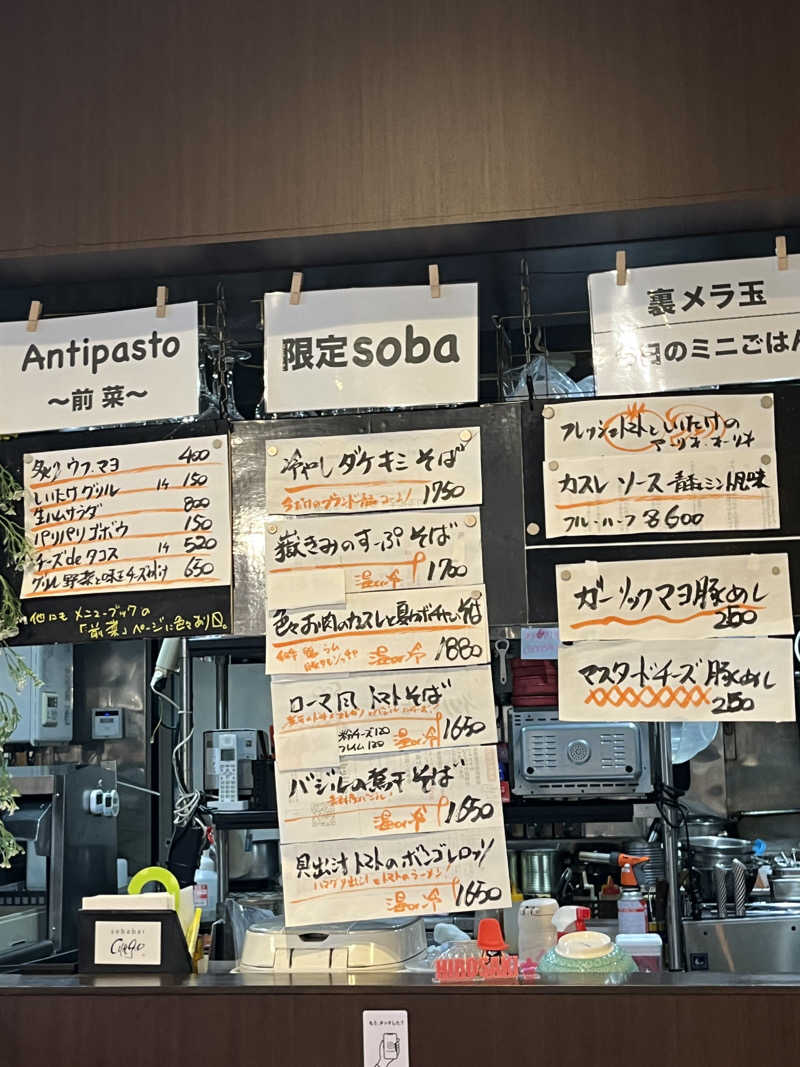 Antipasto
～前菜～
炙りウフマヨ 400
しいたけグリル 1ヶ 150
生ハムサラダ 800
パリパリゴボウ 150
チーズdeタコス 1ヶ 520
グリル野菜と 650
他にもメニューブックの
「前菜」ページに色々あり〼。
限定soba
冷やしダケキミそば
1750
嶽きみのすーぷそば
温or冷 1700
色々お肉のカスレと夏カボチャのそば
温or冷 1880
ローマ風トマトそば
粉チーズ120
温or冷 1650
バジルの煮干そば
温or冷 1650
貝出汁トマトのボンゴレロッソ
ハマグリ出汁とトマトのラーメン!
温or冷 1650
裏メラ玉
今日のミニごはん
フレッシュトマトといたけのアーリオ・オーリオ
カスレソース青ミント風味
フル・ハーフ 600
ガーリックマヨ豚めし
250
マスタードチーズ豚めし
250
sobabar
HIROSAKI
もう、タッチした?